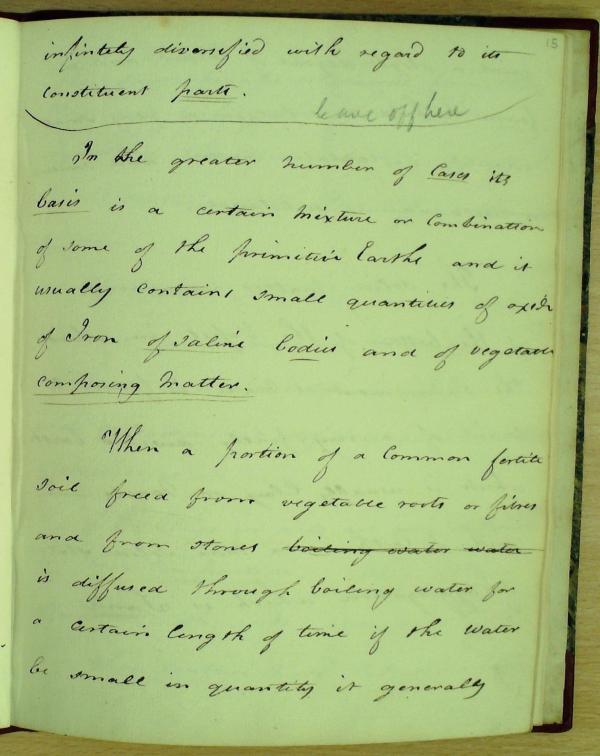 15
infinitely diversified with regard to its
constituent parts.
leave off here
In the greater number of Cases its
basis is a certain mixture or Combination
of some of the primitive Earths and it
usually contains small quantities of oxide
of Iron of saline bodies and of vegetable
composing matter.
When a portion of a Common fertile
soil freed from vegetable roots or fibres
and from stones boiling water water
is diffused through boiling water for
a certain length of time if the water
be small in quantity it generally